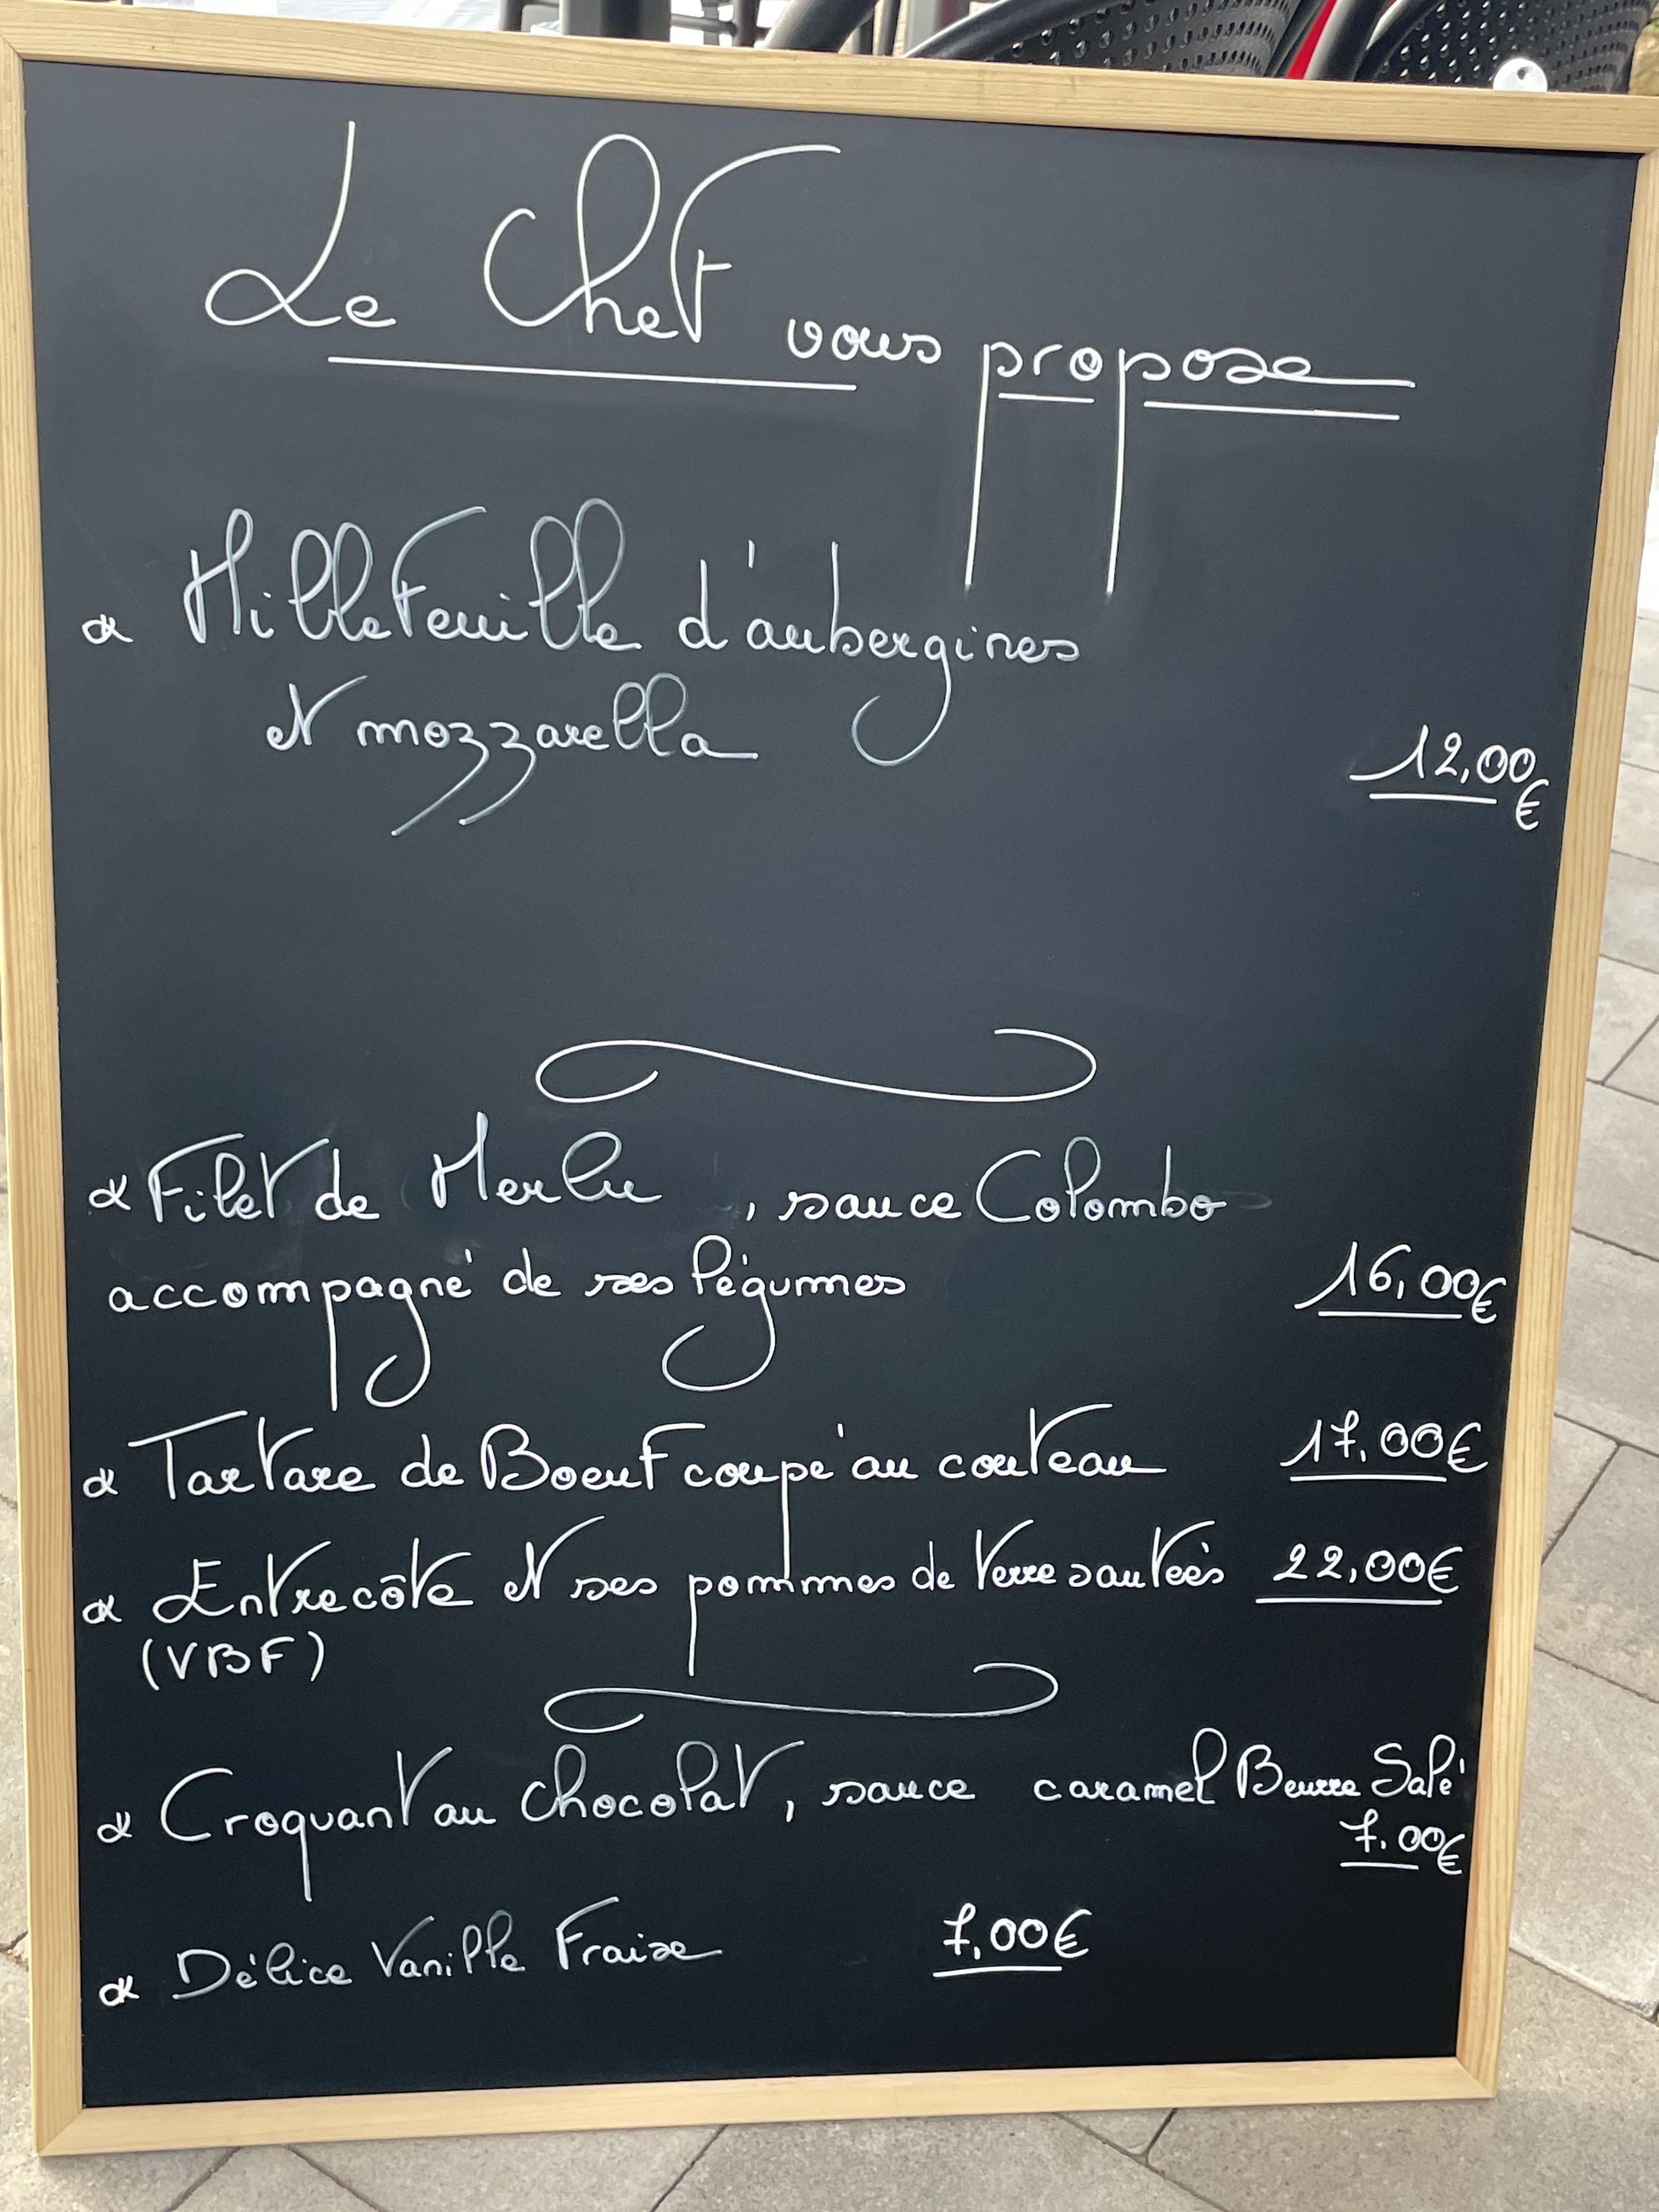 Le Chef vous propose
Millefeuille d'aubergines
et mozzarella
12,00
€
Filet de Merlu , sauce Colombo
accompagné de ses légumes 16,00€
Tartare de Boeuf coupé au couteau 17,00€
Entrecôte et ses pommes de terre sautées 22,00€
(VBF)
Croquant au chocolat, sauce caramel Beurre Salé
7.00€
Délice Vanille Fraise 7,00€